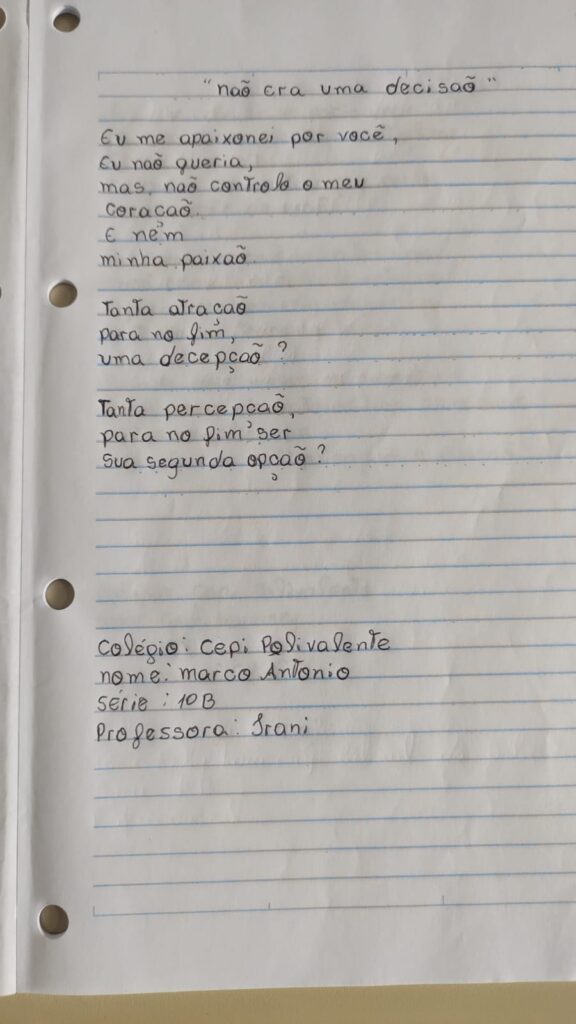 "naõ era uma decisaõ"
Eu me apaixonei por você,
Eu naõ queria,
mas, naõ controlo o meu
coraçaõ.
E ném
minha paixaõ.
Tanta atraçaõ
para no fim,
uma decepçaõ?
Tanta percepçaõ,
para no fim ser
sua segunda opçaõ?
Colégio: Cepi Polivalente
nome: marco Antonio
série: 10B
Professora: Irani